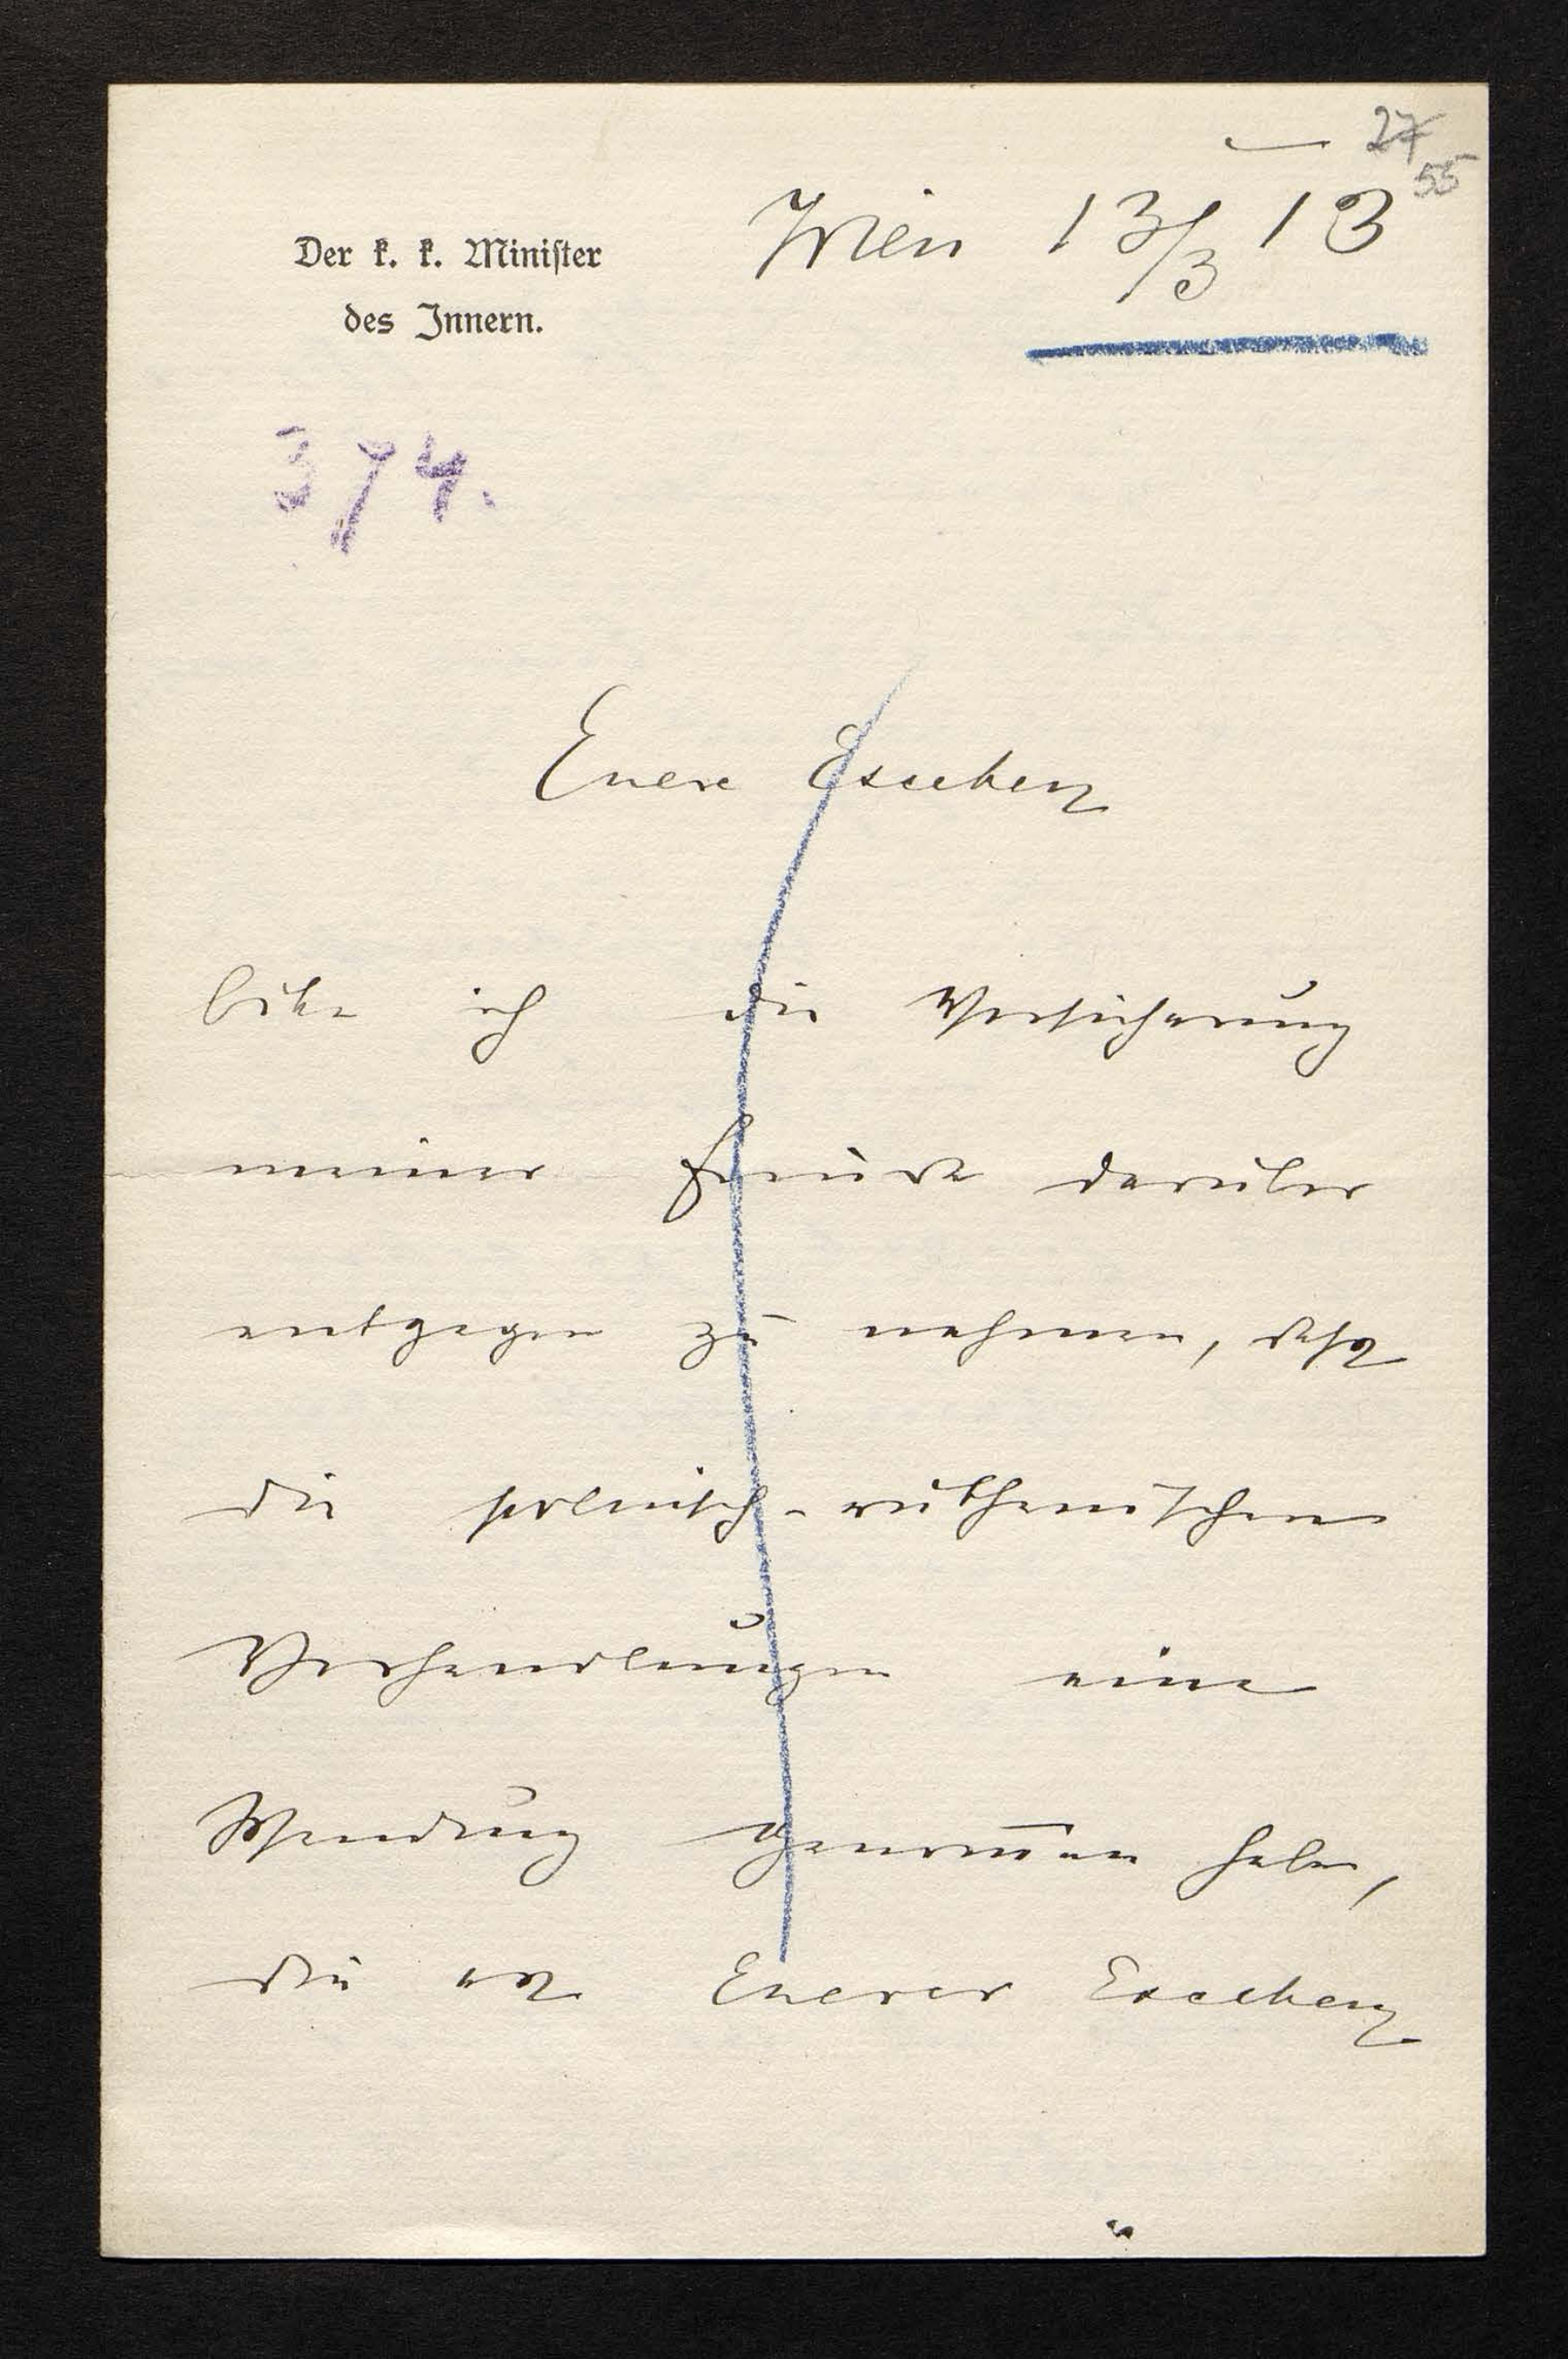 27
55
Wien 13/3 13
Der k. k. Minister
des Innern.
374.
Euere Exzellenz
bitte ich die Versicherung
meiner Freude darüber
entgegen zu nehmen, daß
die polnisch-ruthenischen
Verhandlungen eine
Wendung genom̅en haben,
die es Euerer Exzellenz